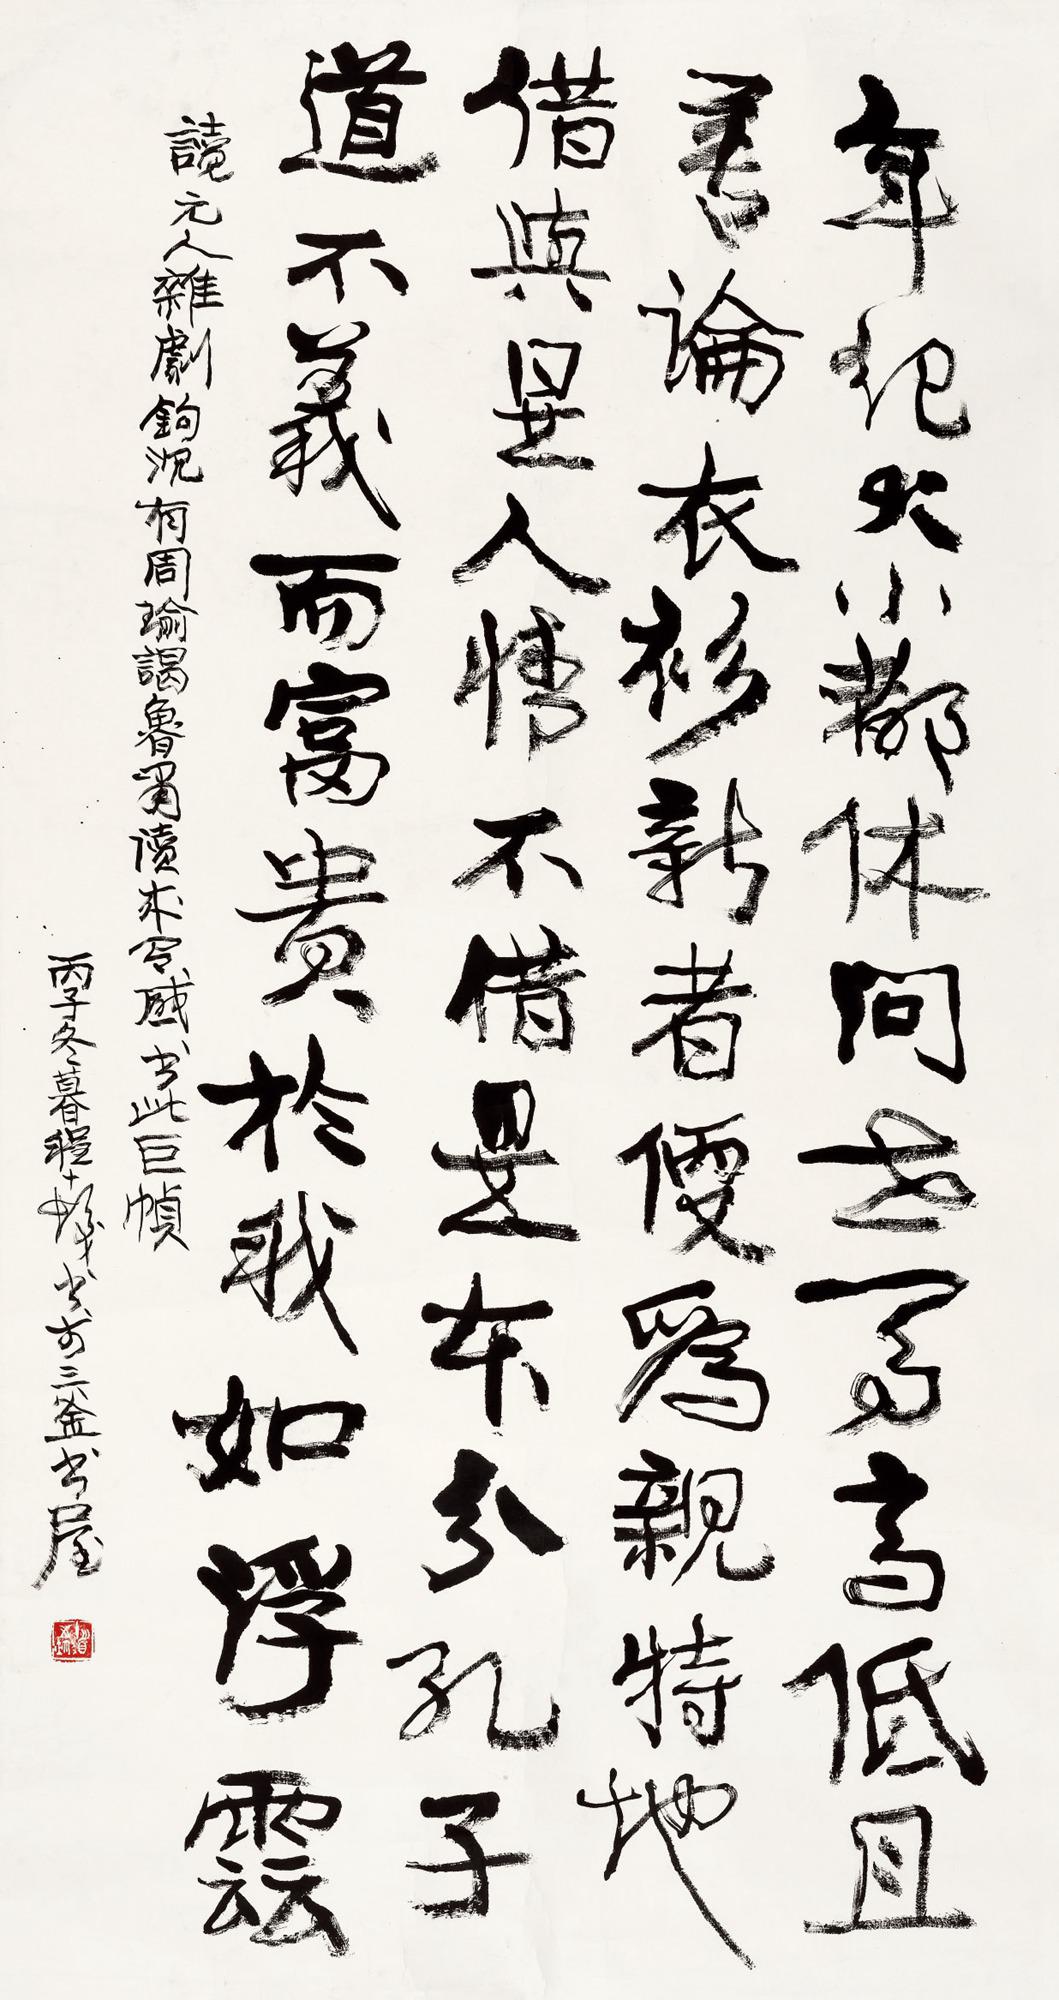 年紀大小都休问世高低且
善論衣衫新者便為親特地
借與是人情不借是本分孔子
道不義而富貴於我如浮雲
讀元人雜劇鉤沉有周瑜謁魯肅讀來令感书此巨幀
丙子冬暮程十髮书於三釜书屋